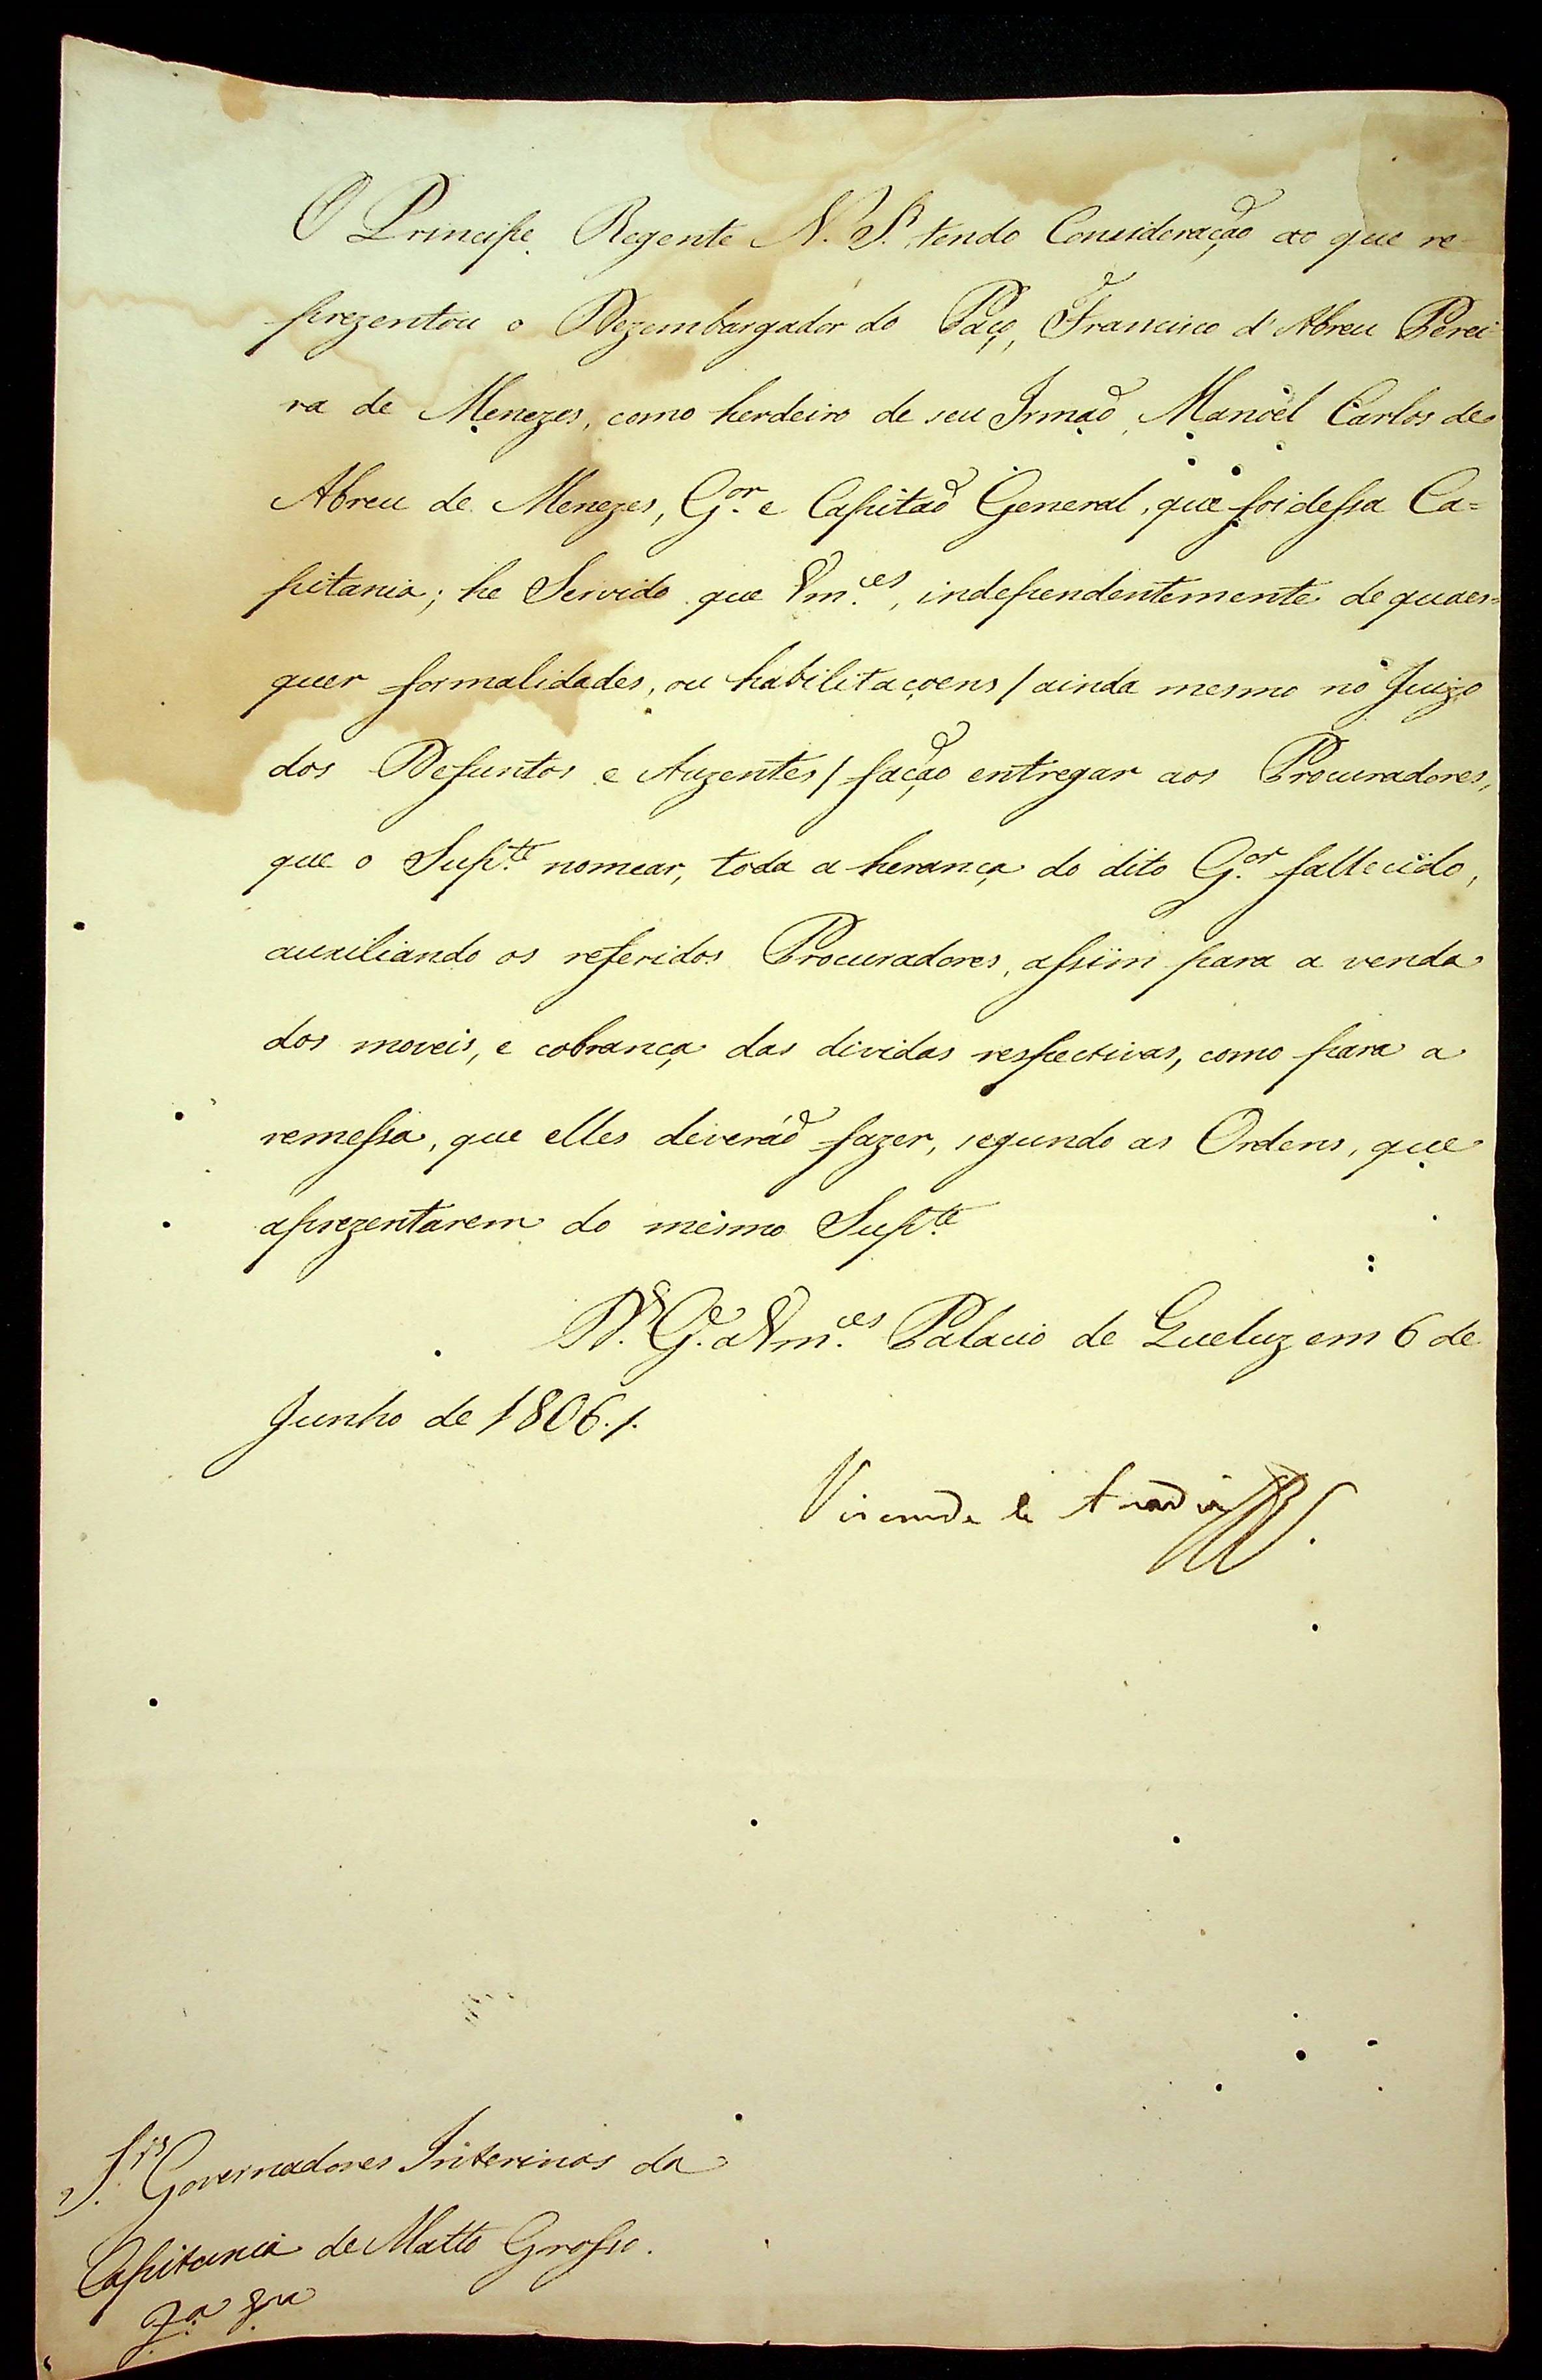 O Principe Regente N. Sr. tendo Consideração ao que re-
prezentou o Dezembargador do Paço, Francisco d'Abreu Perei-
ra de Menezes, como herdeiro de seu Irmaõ, Manoel Carlos de
Abreu de Menezes, G.or e Capitaõ General, que foi dessa Ca=
pitania; he Servido que Vm.ces, independentemente de quaes=
quer formalidades, ou habilitaçoens / ainda mesmo no Juizo
dos Defuntos e Auzentes / façaõ entregar aos Procuradores,
que o Sup.te nomear, toda a herança do dito G.or fallecido,
auxiliando os referidos Procuradores, assim para a venda
dos moveis, e cobrança das dividas respectivas, como para a
remessa, que elles deveráõ fazer, segundo as Ordens, que
aprezentarem do mesmo Sup.te
D.s G.e a Vm.ces Palacio de Queluz em 6 de
Junho de 1806./.
Visconde de Anadia
S.rs Governadores Interinos da
Capitania de Matto Grosso.